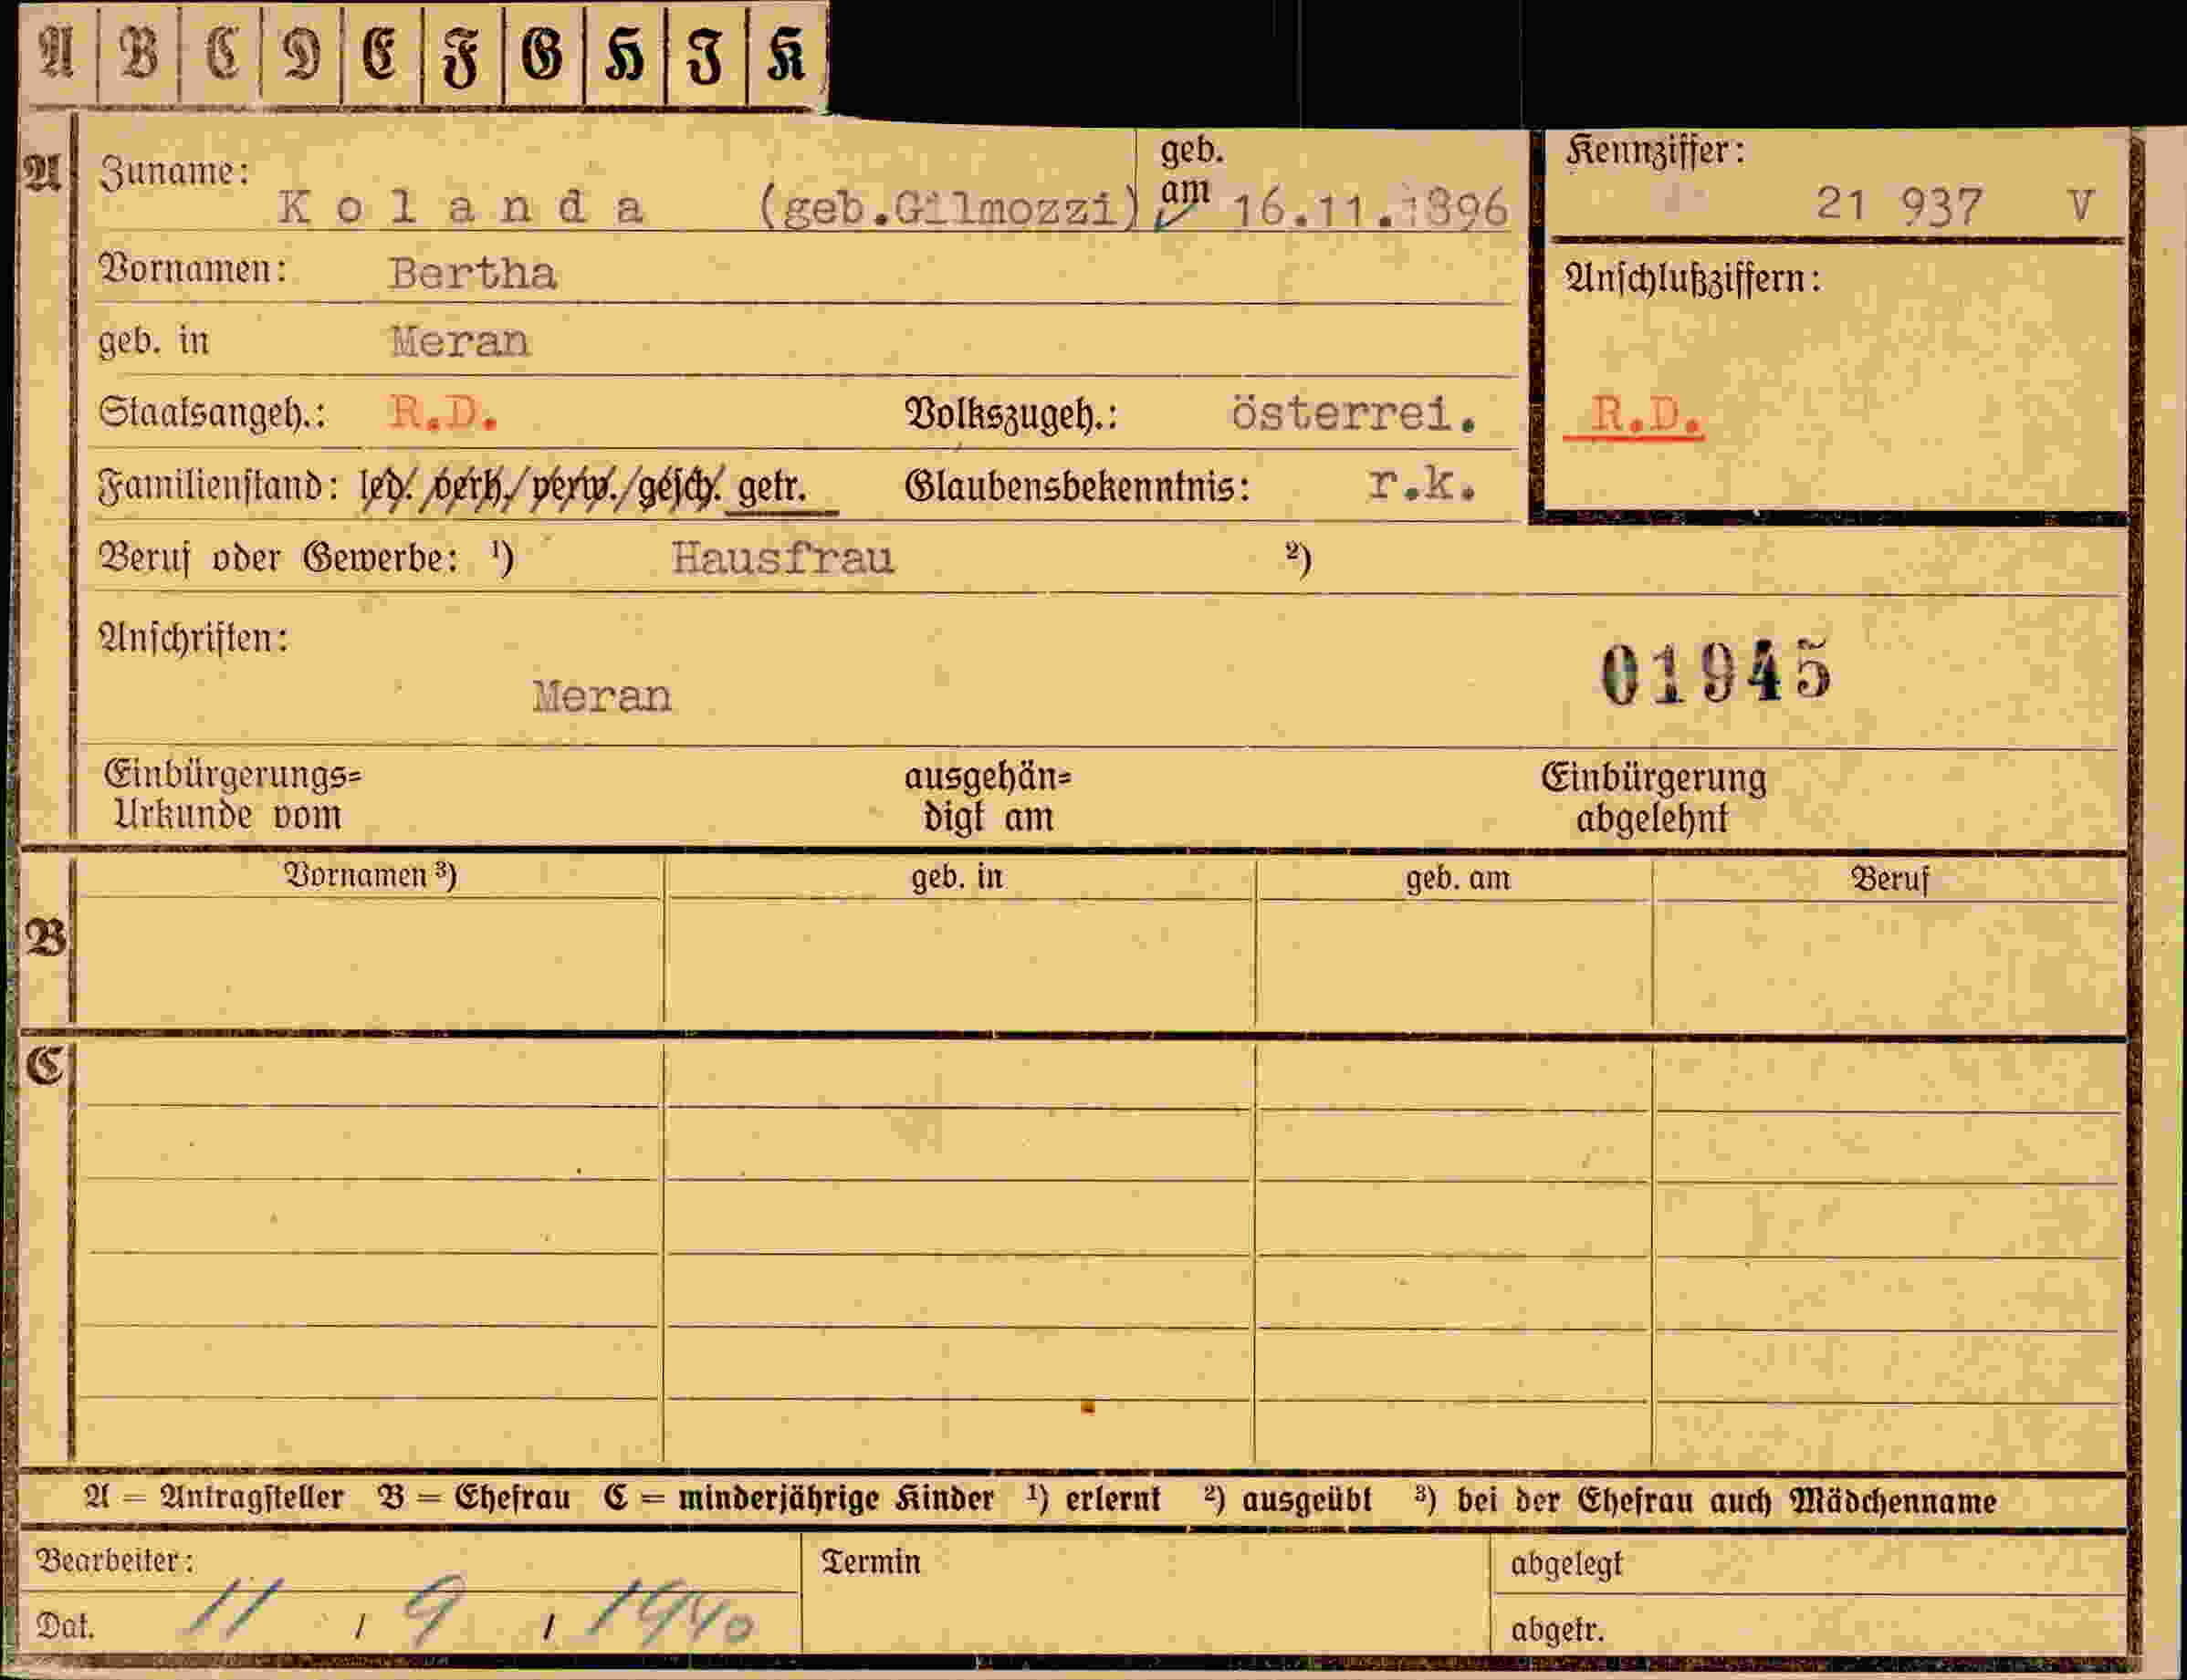 A B C D E F G H I K
A
Zuname: Kolanda (geb.Gilmozzi) geb. am 16.11.1896
Kennziffer: 21 937 V
Vornamen: Bertha
Anschlußziffern:
geb. in Meran
Staatsangeh.: R.D. Volkszugeh.: österrei.
R.D.
Familienstand: led./verh./verw./gesch. getr. Glaubensbekenntnis: r.k.
Beruf oder Gewerbe: ¹) Hausfrau ²)
Anschriften:
Meran
01945
Einbürgerungs= ausgehän= Einbürgerung
Urkunde vom digt am abgelehnt
Vornamen ³) geb. in geb. am Beruf
B
C
A = Antragsteller B = Ehefrau C = minderjährige Kinder ¹) erlernt ²) ausgeübt ³) bei der Ehefrau auch Mädchenname
Bearbeiter: Termin abgelegt
Dat. 11 / 9 / 1940 abgetr.